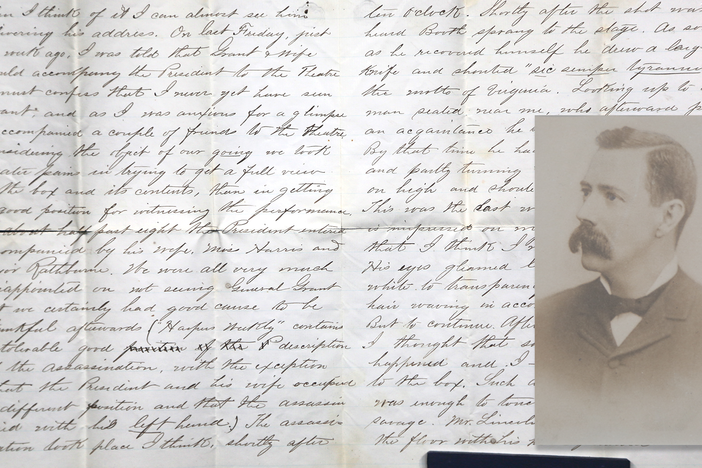 n I think of it I can almost see him
ivering his address. On last Friday, just
week ago, I was told that Grant & Wife
uld accompany the President to the Theatre
must confess that I never yet have seen
ant, and as I was anxious for a glimpse
ccompanied a couple of friends to the Theatre.
nsidering the object of our going we took
ater pains in trying to get a full view
the box and its contents, than in getting
good position for witnessing the performance.
about half past eight the President entered
ompanied by his wife, Miss Harris and
or Rathburne. We were all very much
appointed on not seeing General Grant
t we certainly had good cause to be
ankful afterwards ("Harpers Weekly" contains
tolerable good description
f the assassination, with the exception
that the President and his wife occupied
different position and that the assassin
ied with his left hand.) The assassin
ation took place I think, shortly after
ten o'clock. Shortly after the shot was
heard Booth sprang to the stage. As so
as he recovered himself he drew a larg
knife and shouted "sic semper tyrannis
the motto of Virginia. Looking up to
man seated near me, who afterward p
an acquaintance he
By that time he ha
and partly turning
on high and shoute
This was the last w
is impressed on m
that I think I
His eyes gleamed
white to transparen
hair waving in acco
But to continue. Afte
I thought that so
happened and I
to the box. Such a
was enough to touc
savage. Mr. Lincol
the floor with his